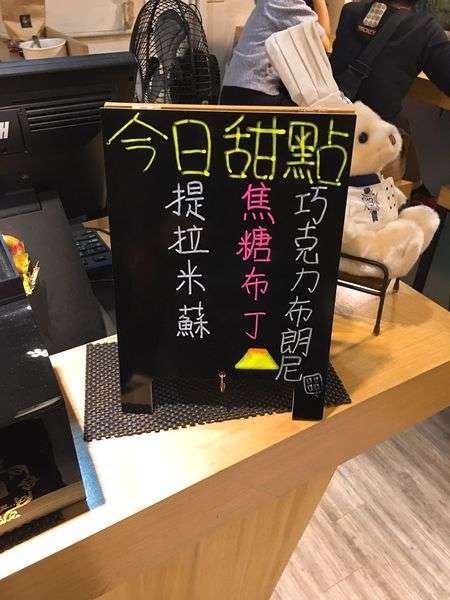 今日甜點
巧克力布朗尼
焦糖布丁
提拉米蘇